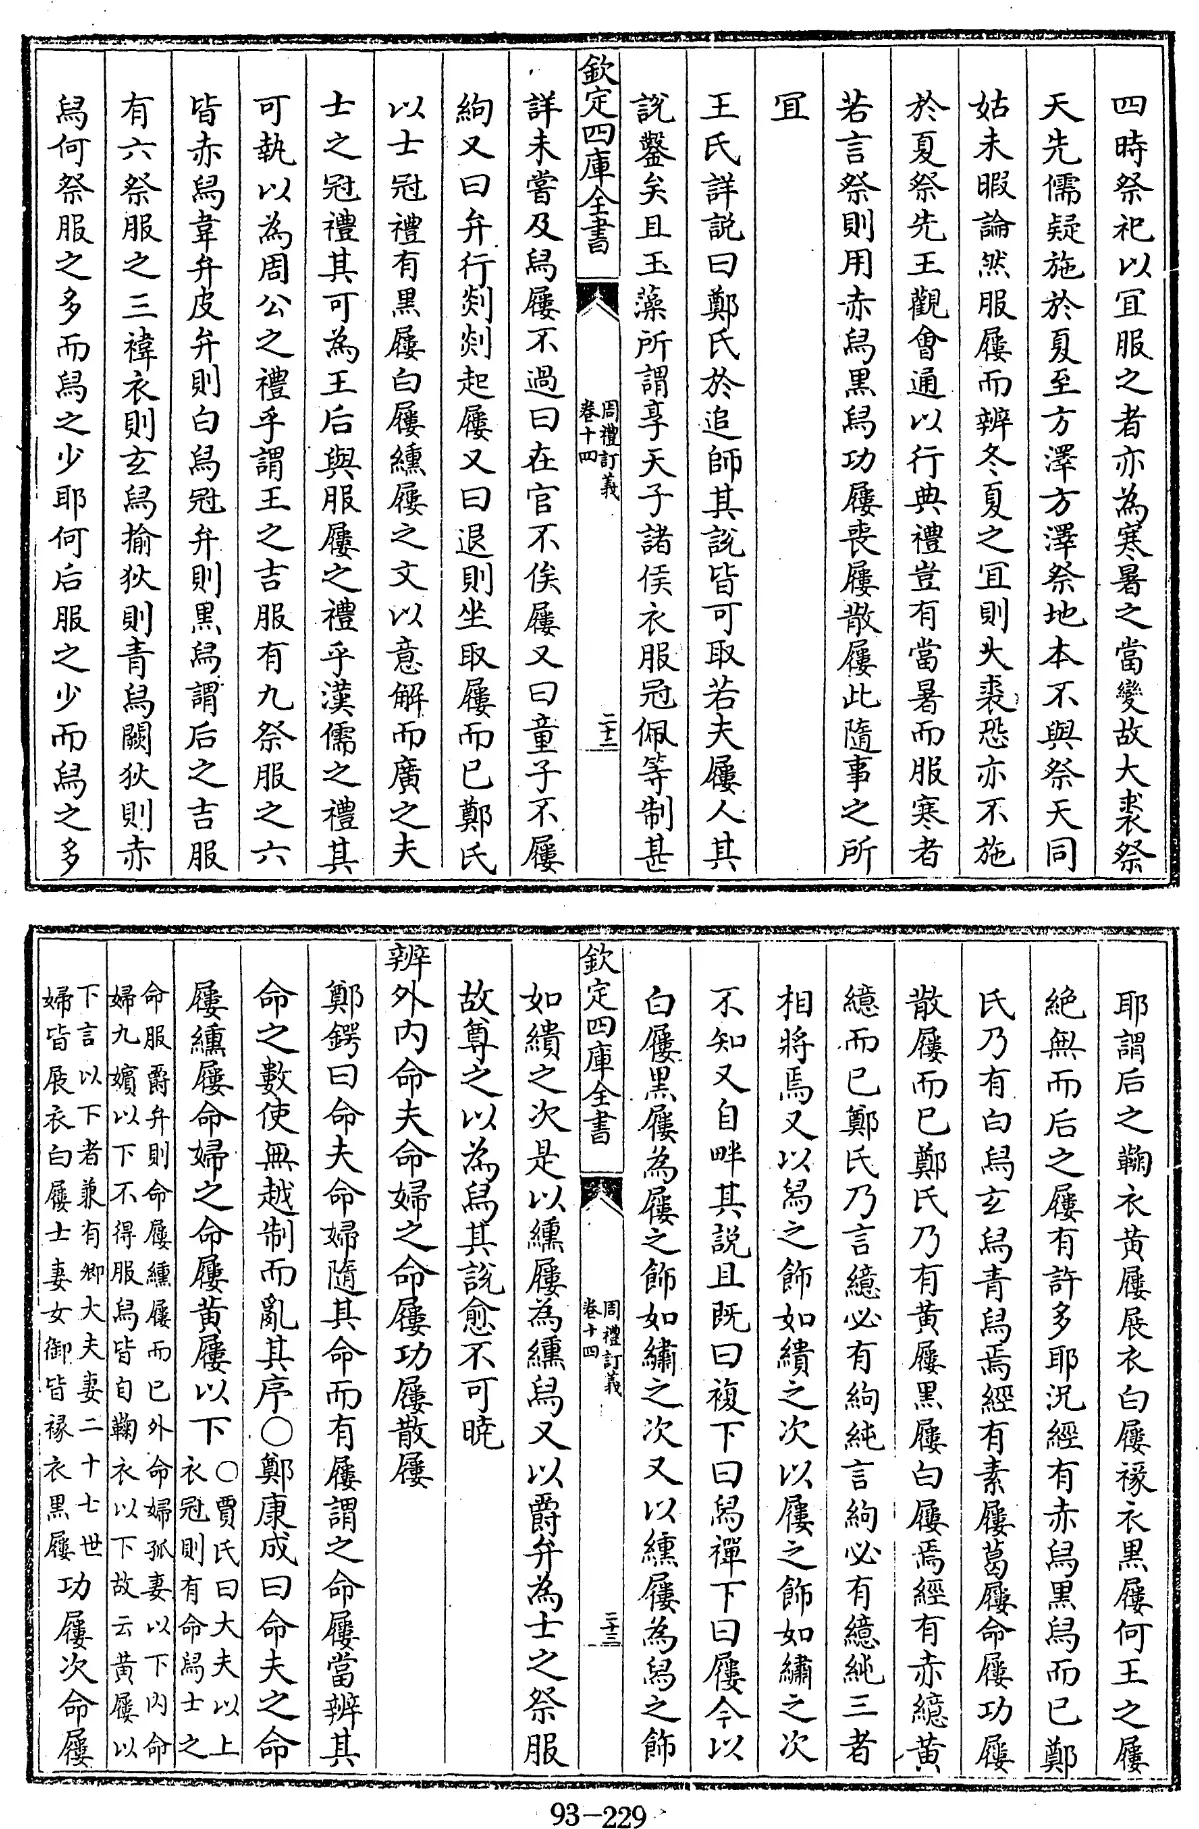 四時祭祀以宜服之者亦為寒暑之當變故大裘祭
天先儒疑施於夏至方澤方澤祭地本不與祭天同
姑未暇論然服屨而辨冬夏之宜則大裘恐亦不施
於夏祭先王觀會通以行典禮豈有當暑而服寒者
若言祭則用赤舄黑舄功屨喪屨散屨此隨事之所
宜
王氏詳說曰鄭氏於追師其說皆可取若夫屨人其
說鑿矣且玉藻所謂享天子諸侯衣服冠佩等制甚
欽定四庫全書
周禮訂義
卷十四
二十二
詳未嘗及舄屨不過曰在官不俟屨又曰童子不屨
絇又曰弁行剡剡起屨又曰退則坐取屨而已鄭氏
以士冠禮有黑屨白屨纁屨之文以意解而廣之夫
士之冠禮其可為王后與服屨之禮乎漢儒之禮其
可執以為周公之禮乎謂王之吉服有九祭服之六
皆赤舄韋弁皮弁則白舄冠弁則黑舄謂后之吉服
有六祭服之三褘衣則玄舄揄狄則青舄闕狄則赤
舄何祭服之多而舄之少耶何后服之少而舄之多
耶謂后之鞠衣黃屨展衣白屨褖衣黑屨何王之屨
絕無而后之屨有許多耶況經有赤舄黑舄而已鄭
氏乃有白舄玄舄青舄焉經有素屨葛屨命屨功屨
散屨而已鄭氏乃有黃屨黑屨白屨焉經有赤繶黃
繶而已鄭氏乃言繶必有絇純言絇必有繶純三者
相將焉又以舄之飾如繢之次以屨之飾如繡之次
不知又自畔其說且既曰複下曰舄禪下曰屨今以
白屨黑屨為屨之飾如繡之次又以纁屨為舄之飾
欽定四庫全書
周禮訂義
卷十四
二十三
如繢之次是以纁屨為纁舄又以爵弁為士之祭服
故尊之以為舄其說愈不可曉
辨外內命夫命婦之命屨功屨散屨
鄭鍔曰命夫命婦隨其命而有屨謂之命屨當辨其
命之數使無越制而亂其序○鄭康成曰命夫之命
屨纁屨命婦之命屨黃屨以下
○賈氏曰大夫以上
衣冠則有命舄士之
命服爵弁則命屨纁屨而已外命婦孤妻以下內命
婦九嬪以下不得服舄皆自鞠衣以下故云黃屨以
下言以下者兼有卿大夫妻二十七世
婦皆展衣白屨士妻女御皆褖衣黑屨
功屨次命屨
93-229